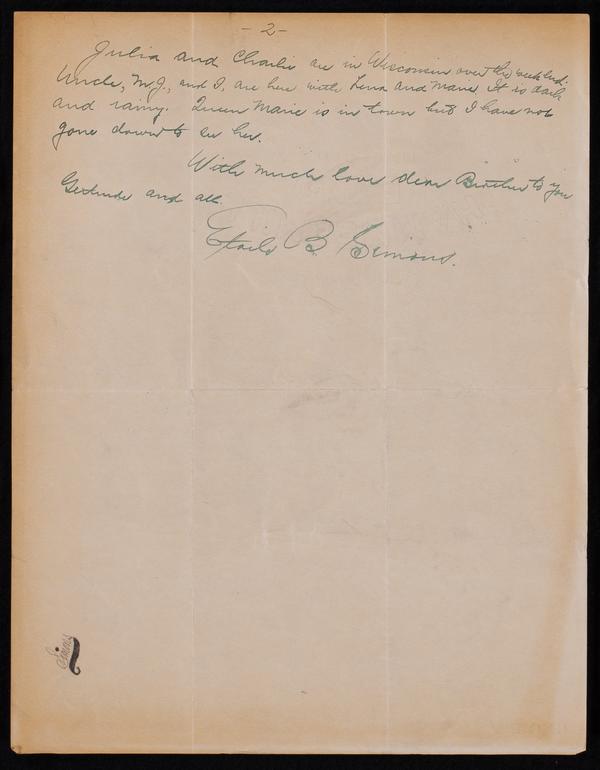 - 2 -
Julia and Charlie are in Wisconsin over the week end.
Uncle, M.J., and I are here with Lena and Marie. It is dark
and rainy. Queen Marie is in town but I have not
gone down to see her.
With much love dear Brother to you
Gertrude and all.
B. Simons.